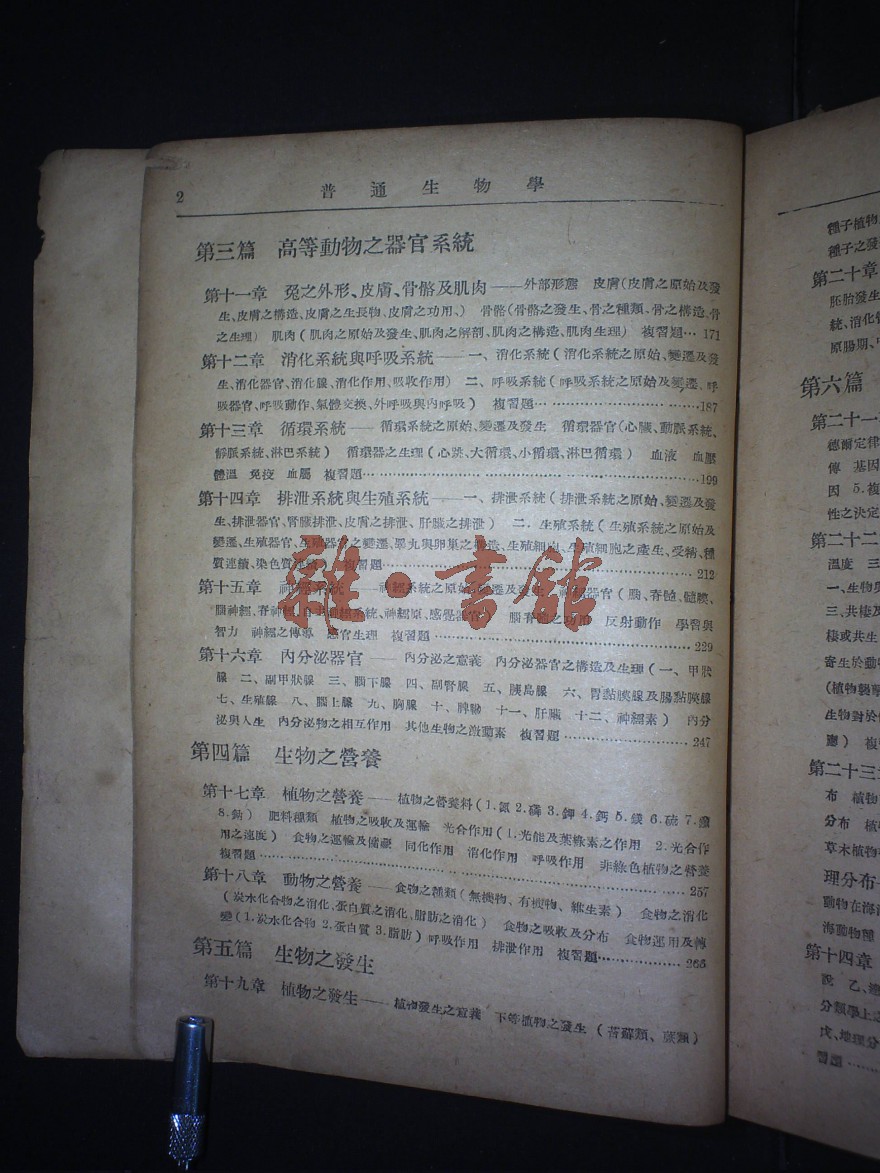 2 普通生物學
第三篇 高等動物之器官系統
第十一章 兔之外形、皮膚、骨骼及肌肉——外部形態 皮膚(皮膚之原始及發
生、皮膚之構造、皮膚之生長物、皮膚之功用、) 骨骼(骨骼之發生、骨之種類、骨之構造、骨
之生理) 肌肉(肌肉之原始及發生、肌肉之解剖、肌肉之構造、肌肉生理) 複習題…171
第十二章 消化系統與呼吸系統——一、消化系統(消化系統之原始、變遷及發
生、消化器官、消化腺、消化作用、吸收作用) 二、呼吸系統(呼吸系統之原始及變遷、呼
吸器官、呼吸動作、氣體交換、外呼吸與內呼吸) 複習題……187
第十三章 循環系統——循環系統之原始、變遷及發生 循環器官(心臟、動脈系統、
靜脈系統、淋巴系統) 循環器之生理(心跳、大循環、小循環、淋巴循環) 血液 血壓
體溫 免疫 血屬 複習題……199
第十四章 排泄系統與生殖系統——一、排泄系統(排泄系統之原始、變遷及發
生、排泄器官、腎臟排泄、皮膚之排泄、肝臟之排泄) 二、生殖系統(生殖系統之原始及
變遷、生殖器官、生殖器官之變遷、睪丸與卵巢之構造、生殖細胞、生殖細胞之產生、受精、種
質連續、染色質連續) 複習題……212
第十五章 神經系統——神經系統之原始、變遷及發生 神經器官(腦、脊髓、髓膜、
腦神經、脊神經、自主神經系統、神經原、感覺器官) 腦脊髓之功用 反射動作 學習與
智力 神經之傳導 感官生理 複習題……229
第十六章 內分泌器官——內分泌之意義 內分泌器官之構造及生理(一、甲狀
腺 二、副甲狀腺 三、腦下腺 四、副腎腺 五、胰島腺 六、胃黏膜腺及腸黏膜腺
七、生殖腺 八、腦上腺 九、胸腺 十、脾臟 十一、肝臟 十二、神經素) 內分
泌與人生 內分泌物之相互作用 其他生物之激動素 複習題……247
第四篇 生物之營養
第十七章 植物之營養——植物之營養料(1.氮 2.磷 3.鉀 4.鈣 5.鎂 6.硫 7.
8.鈉) 肥料種類 植物之吸收及運輸 光合作用(1.光能及葉綠素之作用 2.光合作
用之速度) 食物之運輸及儲藏 同化作用 消化作用 呼吸作用 非綠色植物之營養
複習題……257
第十八章 動物之營養——食物之種類(無機物、有機物、維生素) 食物之消化
(炭水化合物之消化、蛋白質之消化、脂肪之消化) 食物之吸收及分布 食物運用及轉
變(1.炭水化合物 2.蛋白質 3.脂肪) 呼吸作用 排泄作用 複習題……265
第五篇 生物之發生
第十九章 植物之發生——植物發生之意義 下等植物之發生(苔蘚類、蕨類)
雜·書館
種子植物
種子之發
第二十章
胚胎發生
統、消化
原腸期、
第六篇
第二十一
德爾定律
傳 基因
因 5.複
性之決定
第二十二
溫度 三
一、生物與
三、共棲及
棲或共生
寄生於動
(植物襲擊
生物對於
應) 複
第二十三
布 植物
分布 植
草木植物
理分布
動物在海
海動物
第十四章
說 乙、
分類學上之
戊、地理分
習題……